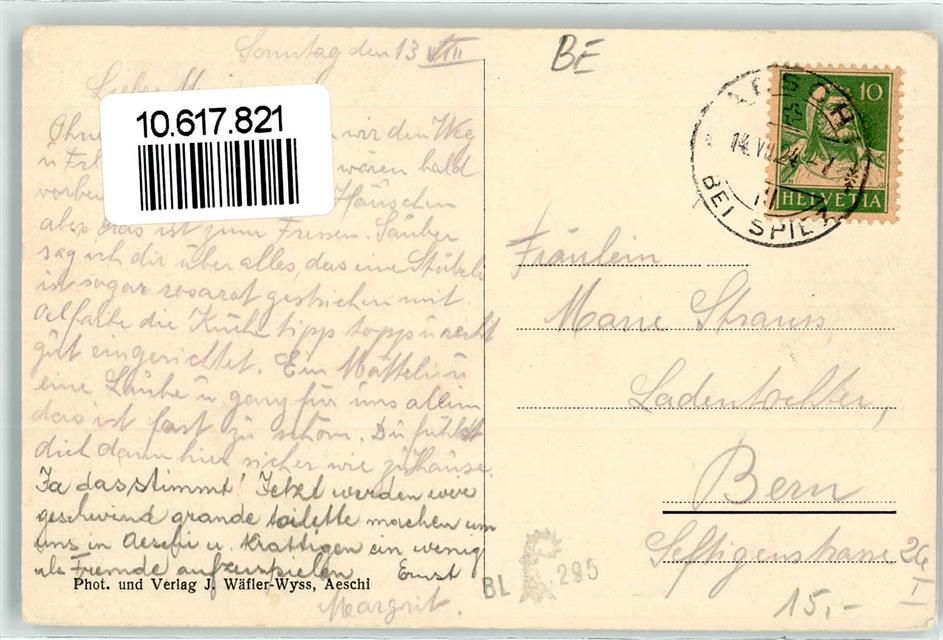 Sonntag den 13 VII
BE
10.617.821
Ohne wir den Weg
u waren bald
vorbei Häuschen
aber das ist zum Fressen. Sauber
sag ich dir über alles, das eine Stübeli
in sogar rosarot gestrichen mit
Oelfarbe die Küche tipp topp u recht
gut eingerichtet. Ein Mätteli u
eine Laube u ganz für uns allein
das ist fast zu schön. Du fühlst
dich dann hier sicher wie zuhause.
Ja das stimmt! Jetzt werden wir
geschwind grande toilette machen um
uns in Aeschi u. Krattigen ein wenig
als Fremde aufzuspielen Ernst
Margrit.
Phot. und Verlag J. Wäfler-Wyss, Aeschi
AESCHI
14.VII.24
BEI SPIEZ
10
HELVETIA
Fräulein
Marie Strauss
Ladentochter,
Bern
Seftigenstrasse 26
I
BL 295
15,-